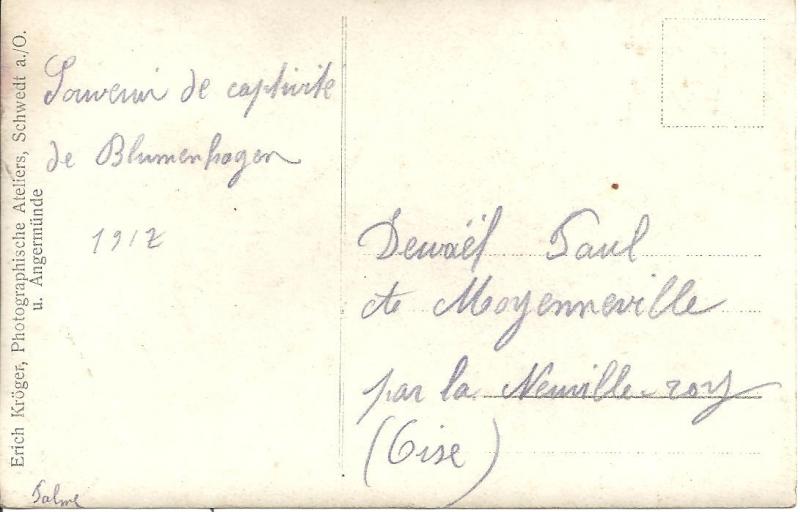 Erich Kröger, Photographische Ateliers, Schwedt a./O.
u. Angermünde
Souvenir de captivité
de Blumenhagen
1917
Dewaël Paul
de Moyenneville
par la Neuville-roy
(Oise)